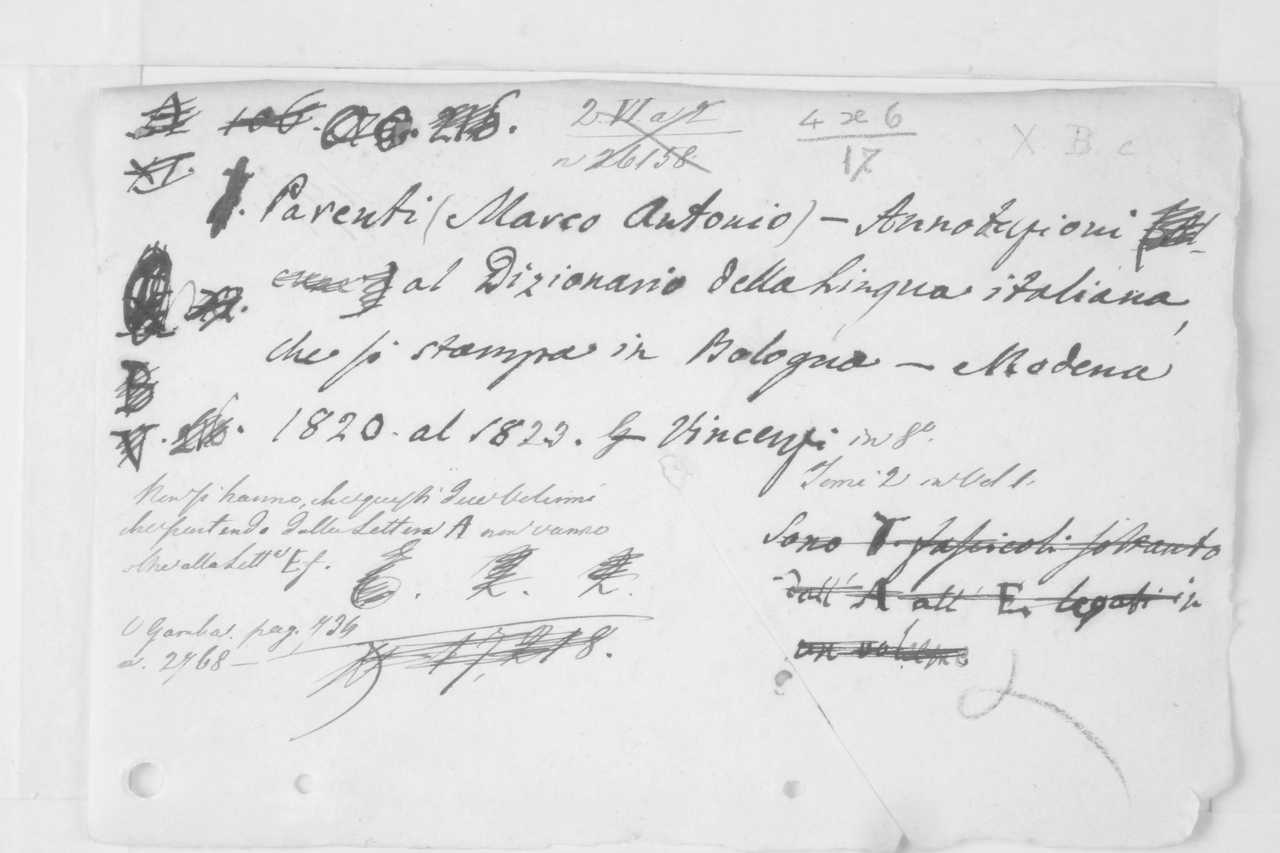 2 VI a 2
n 26158
4 æ 6
17
X B c
XI.
Parenti (Marco Antonio) – Annotazioni
al Dizionario della Lingua italiana,
che si stampa in Bologna – Modena
1820. al 1823. G Vincenzi in 8º.
Tomi 2 in Vol 1.
Non si hanno, che questi due Volumi
che partendo dalla Lettera A non vanno
che alla Lettª E f.
V Gamba. pag. 734
n. 2768 –
17,218.
Sono V. fascicoli soltanto
dall' A all' E. legati in
un volume